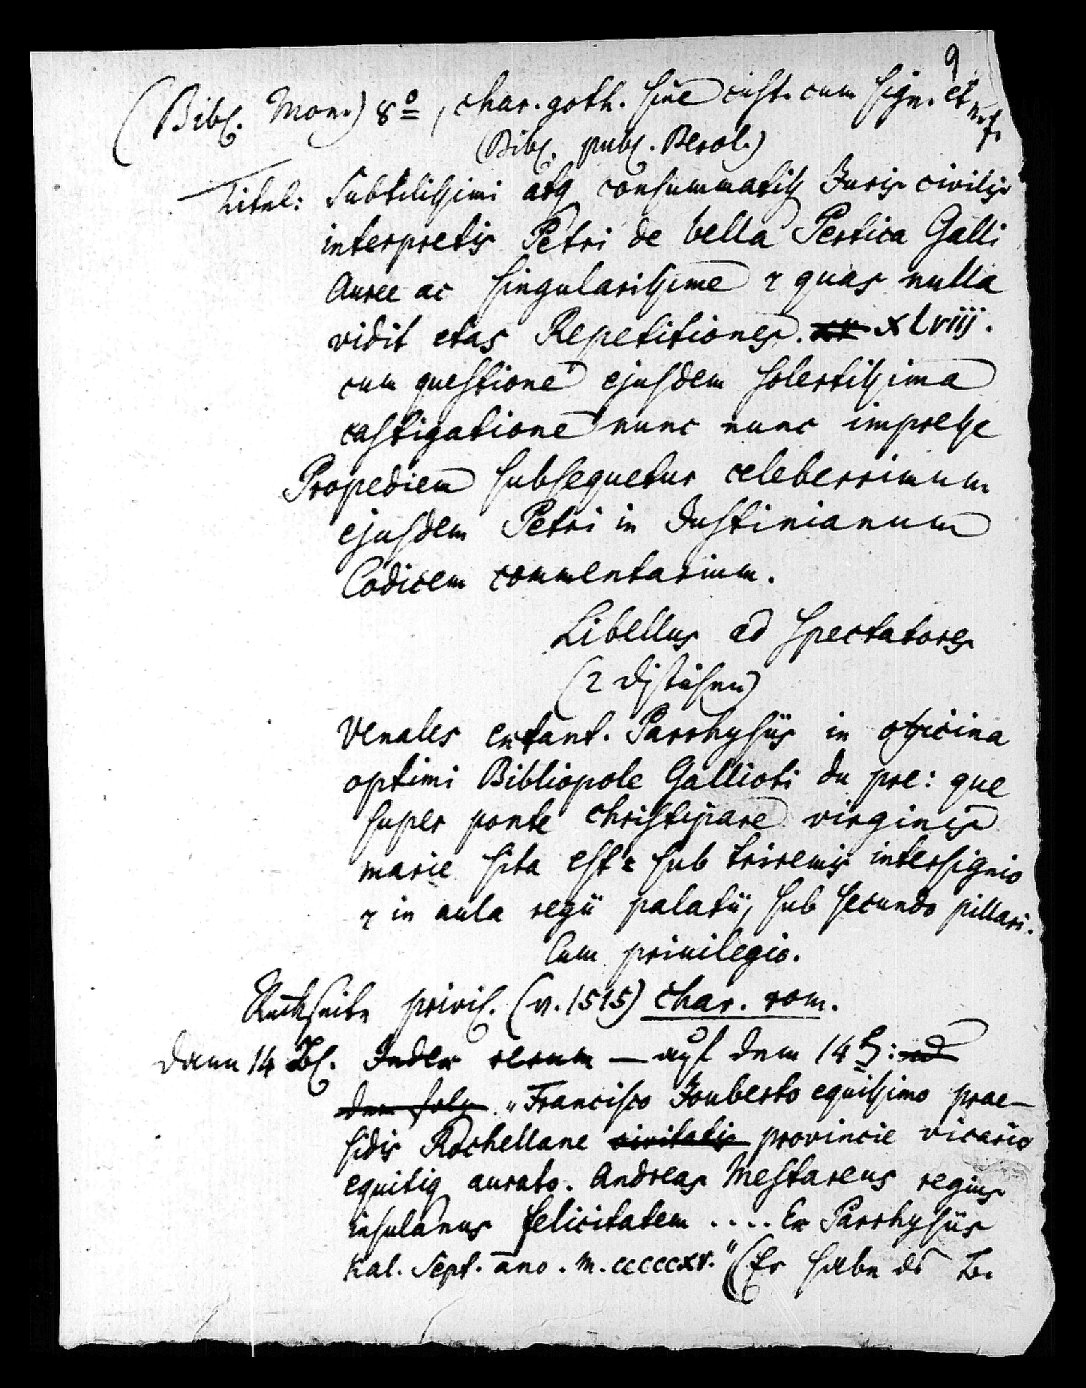 9
(Bibl. Mon.) 8º, char. goth. sine cust. cum sign. et n. f.
(Bibl. publ. Berol.)
Titel: Subtilissimi atq consummatiss Juris civilis
interpretis Petri de bella Pertica Galli
Auree ac singularissime & quas nulla
vidit etas Repetitiones. xx xLviij.
cum questione ejusdem solertissima
castigatione nunc nunc impresse
Propediem subsequetur celeberrimum
ejusdem Petri in Justinianum
Codicem commentarium.
Libellus ad spectatores
(2 Distichen)
Venales extant. Parrhysiis in officina
optimi Bibliopole Gallioti du pre: que
super ponte christipare virginis
marie sita est & sub triremis intersignio
& in aula regii palatii, sub secundo pillari.
Cum privilegio.
Rückseite privil. (v. 1515) char. rom.
dann 14 Bl. Index rerum — auf dem 14t: ad
dem folg. „Francisco Jouberto equissimo prae-
sidis Rochellane civitatis provincie vicario
equitiq aurato. Andreas Mestareus regius
insulanus felicitatem .... Ex Parrhysiis
Kal. Sept. ano. m. cccccxv." (Er habe ds B.